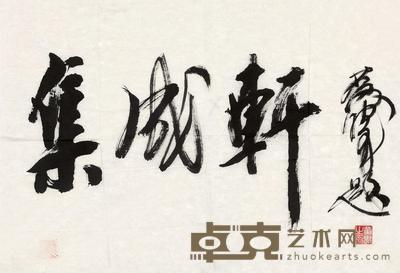 集成軒
題
卓克艺术网
zhuokearts.com